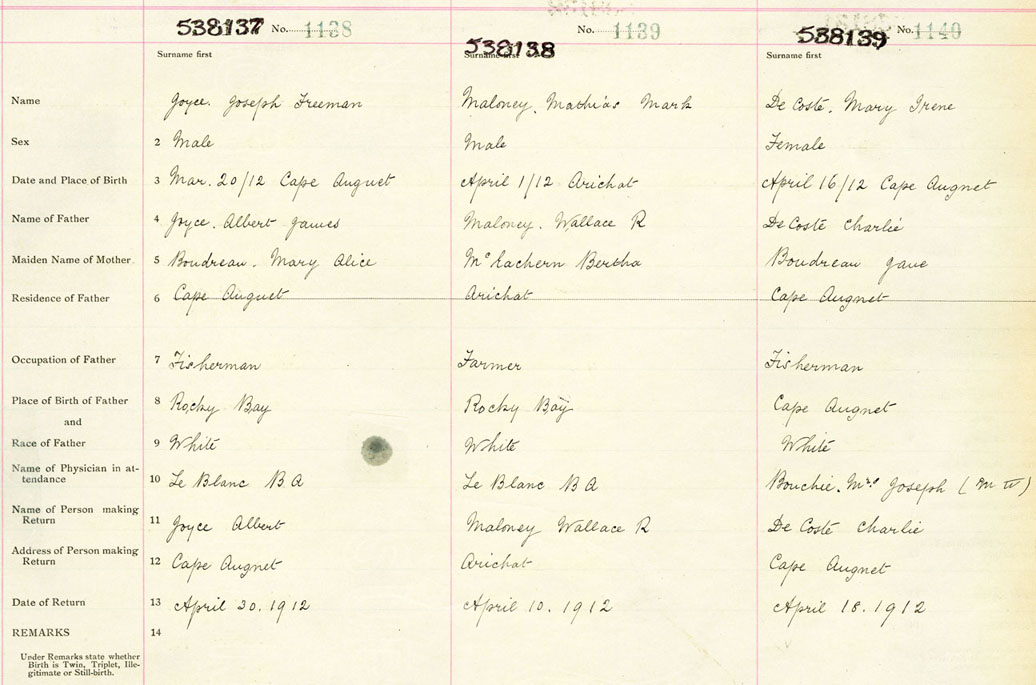 538137 No. 1138
No. 1139
538139 No. 1140
538138
Surname first
Surname first
Surname first
Name Joyce. Joseph Freeman Maloney. Mathias Mark De Coste. Mary Irene
Sex 2 Male Male Female
Date and Place of Birth 3 Mar. 20/12 Cape Auguet April 1/12 Arichat April 16/12 Cape Augnet
Name of Father 4 Joyce. Albert James Maloney. Wallace R De Coste Charlie
Maiden Name of Mother 5 Boudreau. Mary Alice McEachern Bertha Boudreau Jane
Residence of Father 6 Cape Auguet Arichat Cape Augnet
Occupation of Father 7 Fisherman Farmer Fisherman
Place of Birth of Father 8 Rocky Bay Rocky Bay Cape Augnet
and
Race of Father 9 White White White
Name of Physician in at-
tendance 10 Le Blanc B A Le Blanc B A Bouchie. Mrs Joseph (M W)
Name of Person making
Return 11 Joyce Albert Maloney Wallace R De Coste Charlie
Address of Person making
Return 12 Cape Augnet Arichat Cape Augnet
Date of Return 13 April 30. 1912 April 10. 1912 April 18. 1912
REMARKS 14
Under Remarks state whether
Birth is Twin, Triplet, Ille-
gitimate or Still-birth.